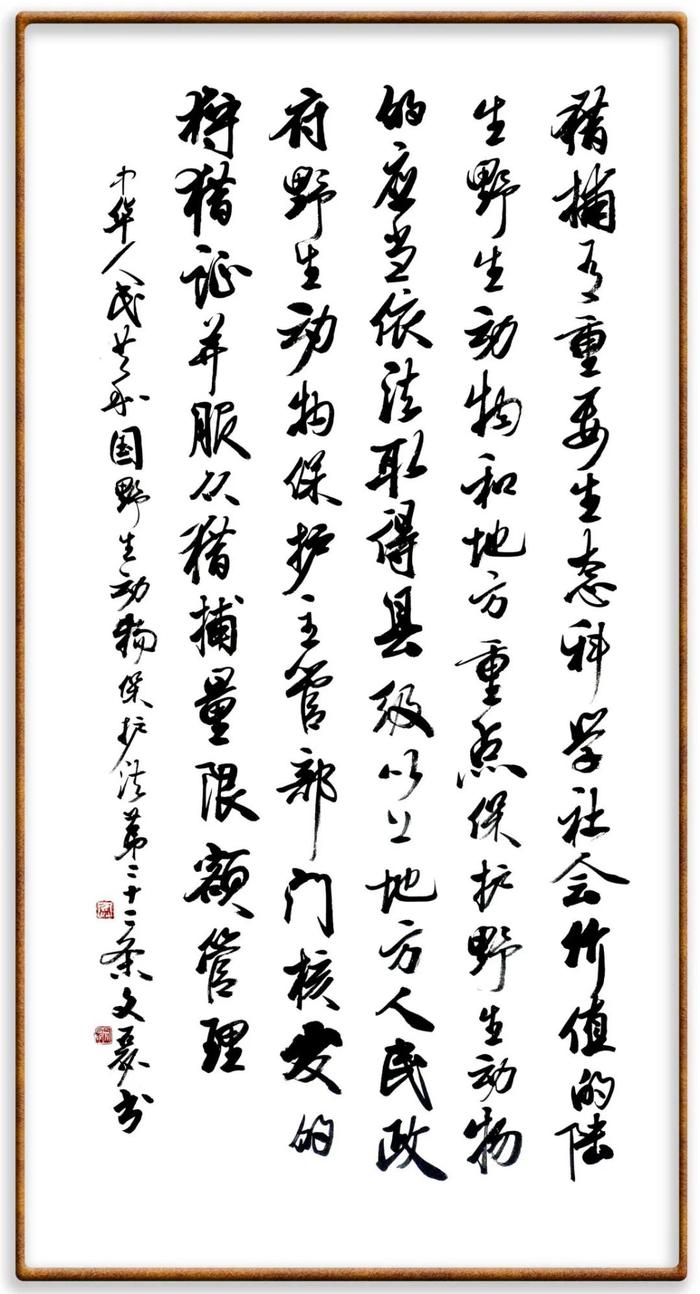 猎捕有重要生态科学社会价值的陆
生野生动物和地方重点保护野生动物
的应当依法取得县级以上地方人民政
府野生动物保护主管部门核发的
狩猎证并服从猎捕量限额管理
中华人民共和国野生动物保护法第二十二条文书